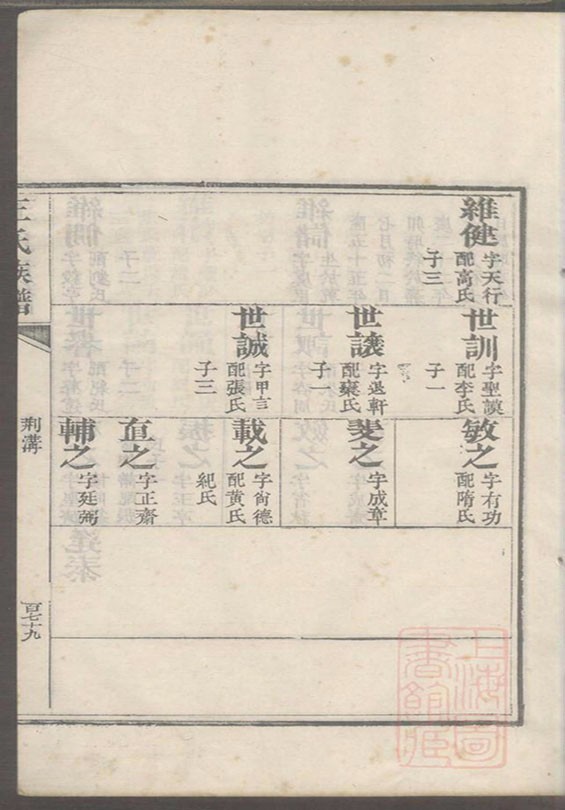 維健
字天行
配高氏
子三
世訓
字聖謨
配李氏
子一
世讓
字退軒
配
子一
世誠
字甲言
配張氏
子三
敏之
字有功
配隋氏
斐之
字成章
載之
字尙德
配黃氏
紀氏
直之
字正齋
輔之
字廷弼
王氏族譜
荆溝
百七十九
上海圖
書館藏